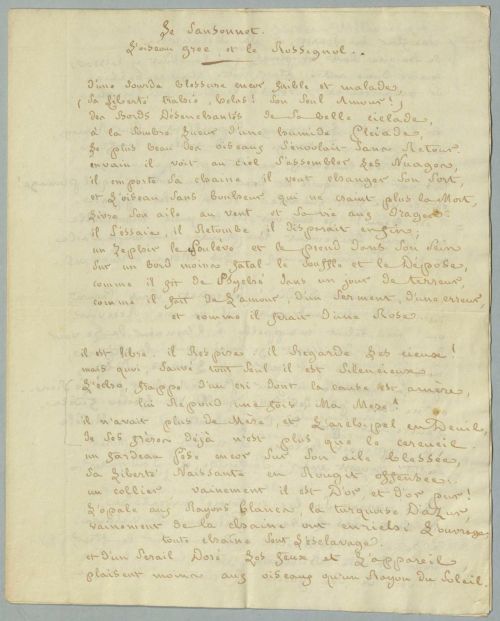 Le Sansonnet.
L'oiseau grec, et le Rossignol..
d'une sourde blessure encor faible et malade,
(sa Liberté trahie, helas! son seul amour!)
des Bords Désenchantés de sa belle ciclade,
à la sombre lueur d'une humide Pleiade,
Le plus beau des oiseaux s'envolait sans Retour.
envain il voit au ciel s'assembler Les Nuages,
il emporte sa chaine, il veut changer son sort,
et L'oiseau sans bonheur qui ne craint plus la Mort,
Livre son aile au vent et sa vie aux orages.
il s'essaie, il Retombe, il disparait enfin;
un Zephir le soulève et le prend dans son sein
sur un bord moins fatal le souffle et le Dépose,
comme il fit de Psyché dans un jour de terreur,
comme il fait de L'amour, d'un serment, d'une erreur,
et comme il ferait d'une Rose.
il est libre, il Respire, il Regarde Les cieux!
mais quoi, sauvé tout seul il est silencieux.
L'echo, frappé d'un cri dont la cause est amère,
lui Répond une fois Ma Mere!
il n'avait plus de Mère, et L'archipel en Deuil,
de ses frères déjà n'est plus que le cercueil.
un fardeau Pèse encor sur son aile blessée,
sa Liberté Naissante en Rougit offensée.
un collier vainement il est D'or et d'or pur!
L'opale aux Rayons blancs, la turquoise D'azur,
vainement de la chaine ont enrichi L'ouvrage,
toute chaine sent L'esclavage.
et d'un serail Doré Les feux et L'appareil
plaisent moins aux oiseaux qu'un Rayon du soleil.